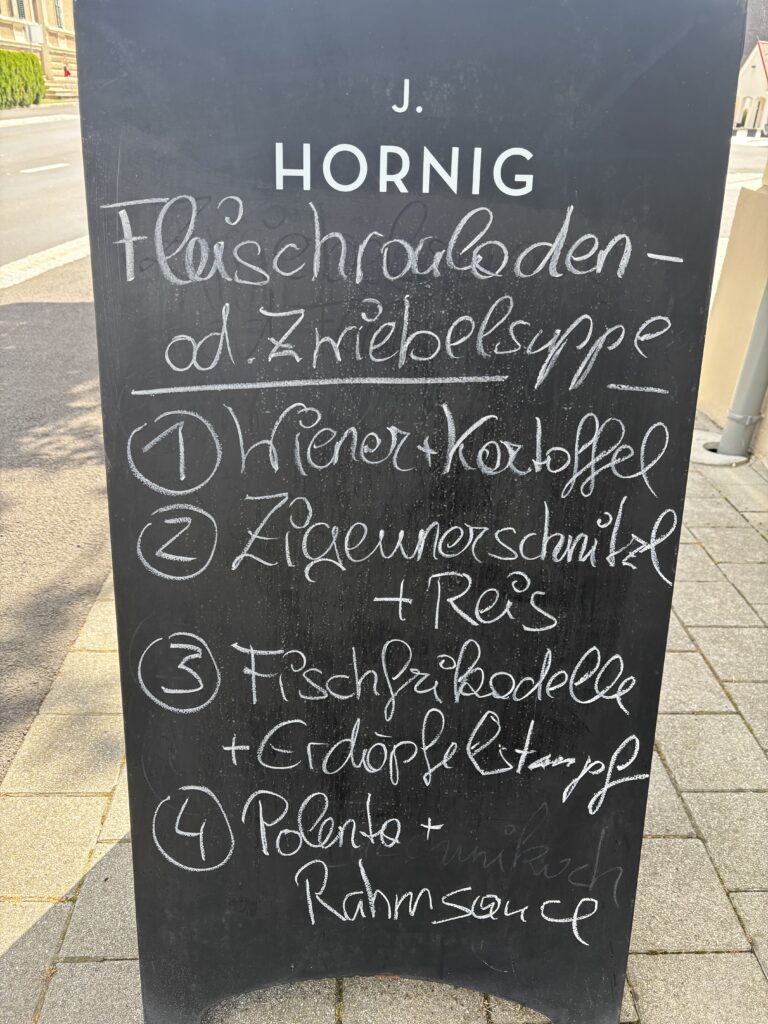 J.
HORNIG
Fleischrouladen-
od. Zwiebelsuppe
1 Wiener + Kartoffel
2 Zigeunerschnitzl
+ Reis
3 Fischfrikadelle
+ Erdäpfelstampf
4 Polenta +
Rahmsauce